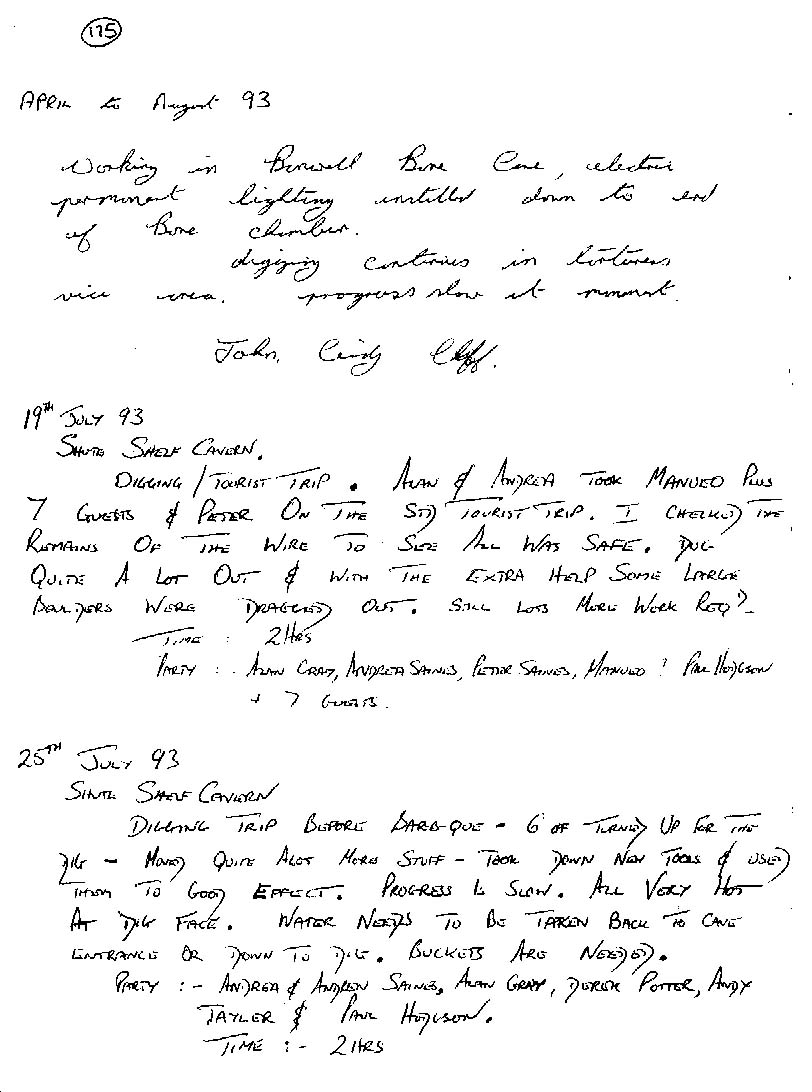 175
APRIL to August 93
Working in Banwell Bone Cave, electric
permanent lighting installed down to end
of Bone chamber.
digging continues in torturers
vice area. progress slow at moment.
John, Cindy Cliff.
19TH JULY 93
SHUTE SHELF CAVERN.
DIGGING / TOURIST TRIP. ALAN & ANDREA TOOK MANUEO PLUS
7 GUESTS & PETER ON THE STD TOURIST TRIP. I CHECKED THE
REMAINS OF THE WIRE TO SEE ALL WAS SAFE. DUG
QUITE A LOT OUT & WITH THE EXTRA HELP SOME LARGE
BOULDERS WERE DRAGGED OUT. STILL LOTS MORE WORK REQD.
TIME : 2HRS
PARTY : - ALAN GRAY, ANDREA SAINES, PETER SAINES, MANUEO ? PAUL HODGSON
+ 7 GUESTS.
25TH JULY 93
SHUTE SHELF CAVERN
DIGGING TRIP BEFORE BARB-QUE - 6 OF TURNED UP FOR THE
DIG - MOVED QUITE ALOT MORE STUFF - TOOK DOWN NEW TOOLS & USED
THEM TO GOOD EFFECT. PROGRESS IS SLOW. ALL VERY HOT
AT DIG FACE. WATER NEEDS TO BE TAKEN BACK TO CAVE
ENTRANCE OR DOWN TO DIG. BUCKETS ARE NEEDED.
PARTY :- ANDREA & ANDREW SAINES, ALAN GRAY, DEREK POTTER, ANDY
TAYLER & PAUL HODGSON.
TIME :- 2HRS